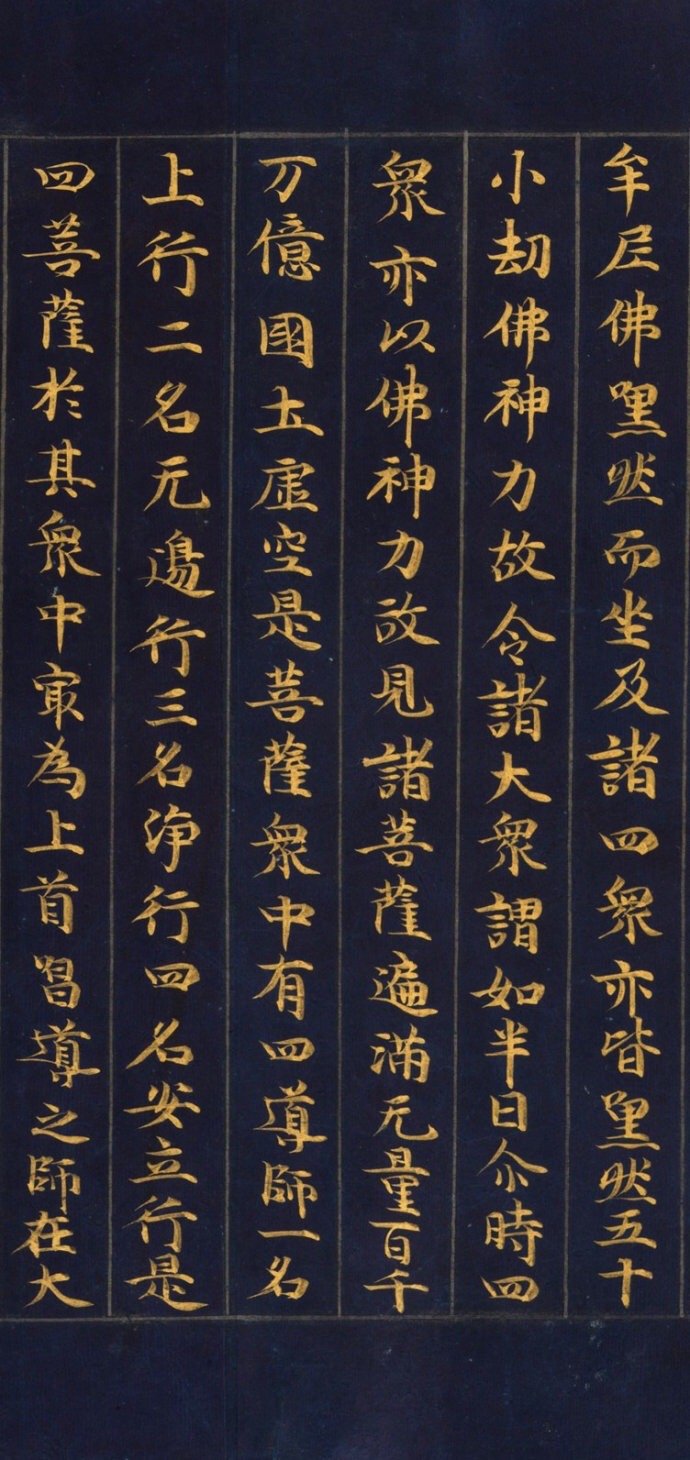 牟尼佛嘿然而坐及諸四衆亦皆嘿然五十
小劫佛神力故令諸大衆謂如半日尒時四
衆亦以佛神力故見諸菩薩遍滿无量百千
万億國土虛空是菩薩衆中有四導師一名
上行二名无邊行三名淨行四名安立行是
四菩薩於其衆中冣為上首唱導之師在大